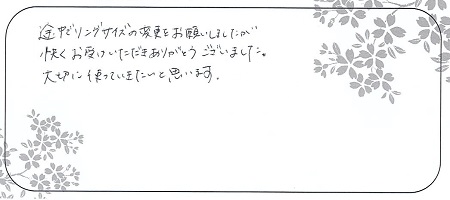 途中でリングサイズの変更をお願いしましたが
快くお受けいただきありがとうございました。
大切に使っていきたいと思います。